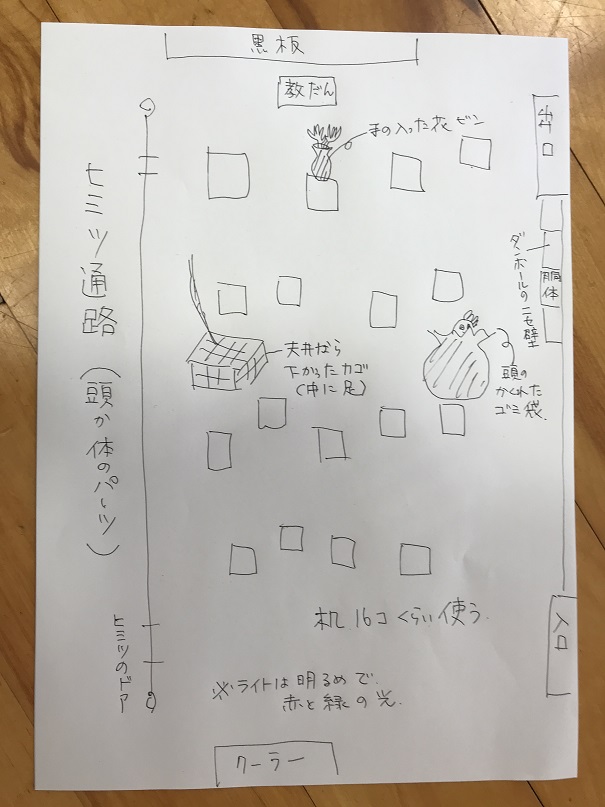 黒板
教だん
手の入った花ビン
出口
ダンボールのニセ壁
胴体
ヒミツ通路(頭か体のパーツ)
天井から
下がったカゴ
(中に足)
頭の
かくれた
ゴミ袋.
机16コくらい使う.
入口
ヒミツのドアー
※ライトは明るめで.
赤と緑の光.
クーラー